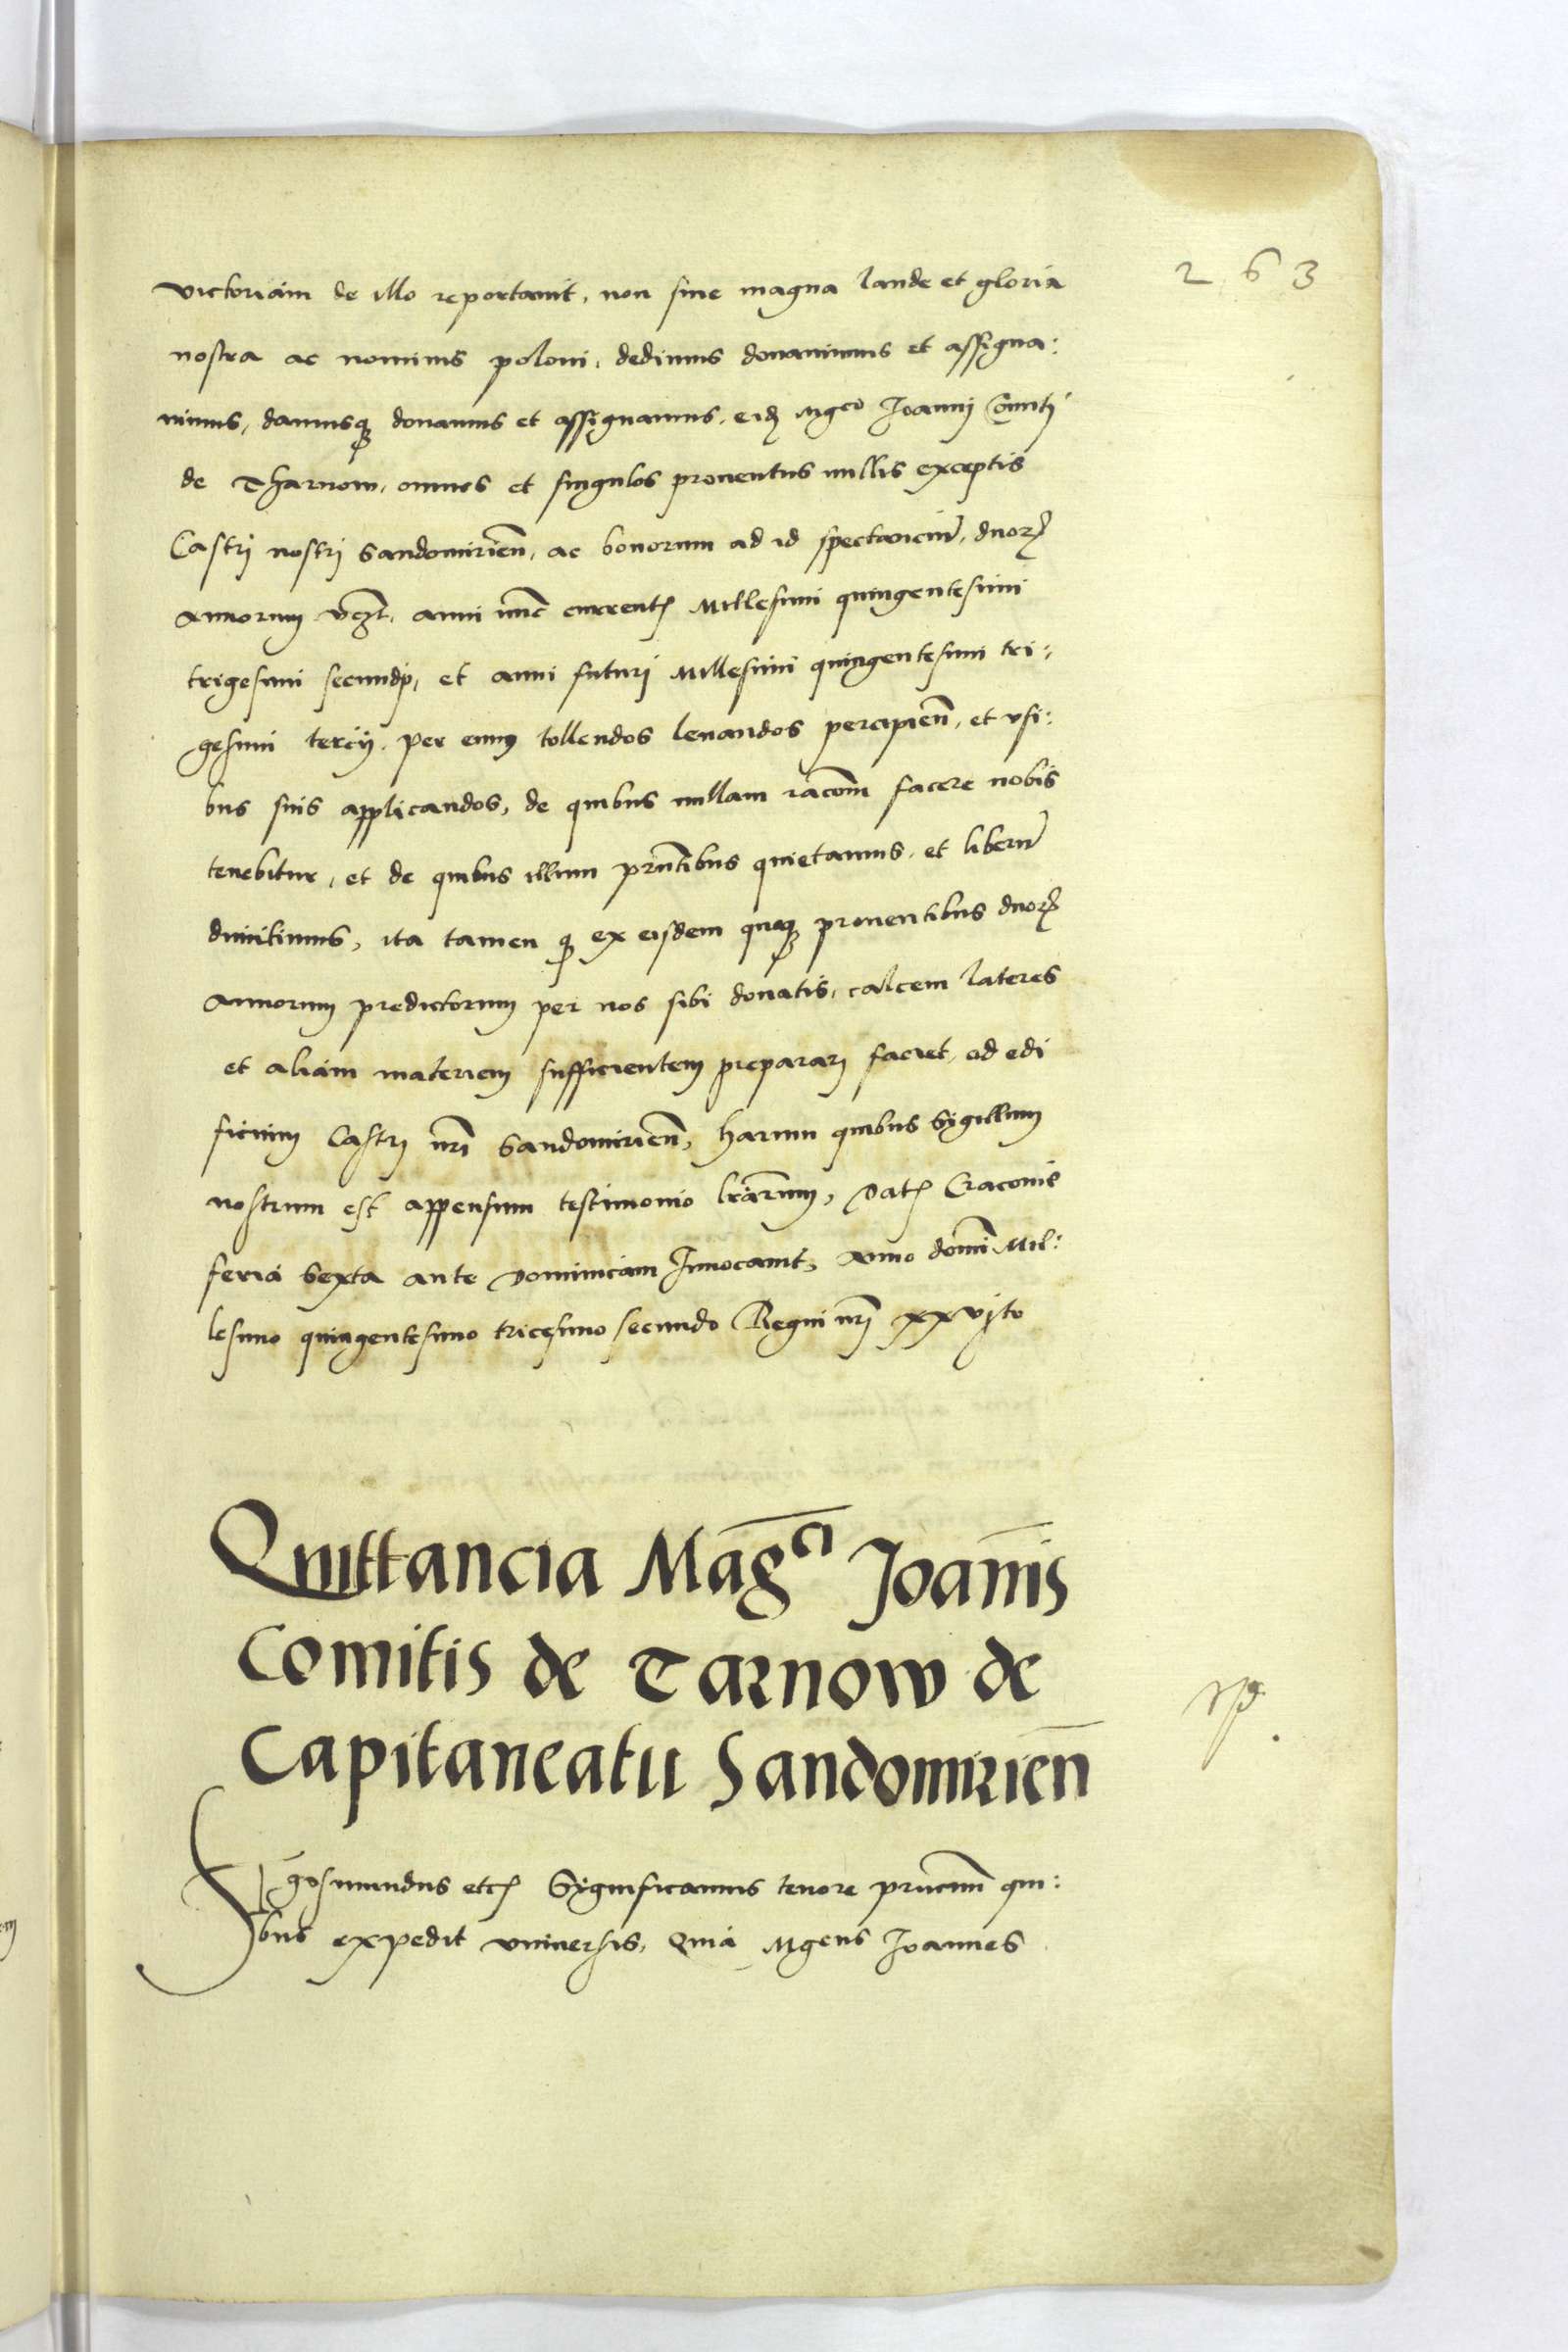 263
victoriam de illo reportauit, non sine magna laude et gloria
nostra ac nominis poloni, dedimus donauimus et assigna:
uimus, damusq3 donamus et assignamus, eid Mgco Joannj Comitj
de Tharnow, omnes et singulos prouentus nullis exceptis
Castri nostri Sandomirien̄, ac bonorum ad id spectancium̄, duorꝝ
annorum vꝫt, anni nunc currentꝭ Millesimi quingentesimi
trigesimi secundj, et anni futurj Millesimi quingentesimi tri:
gesimi tercij, per eum tollendos leuandos percipien̄, et vsi:
bus suis applicandos, de quibus nullam rac̄om̄ facere nobis
tenebitur, et de quibus illum prn̄tibus quietamus, et liberum̄
dimittimus, ita tamen q3 ex eisdem quoq3 prouentibus duorꝝ
annorum predictorum per nos sibi donatis, calcem lateres
et aliam materiem sufficientem preparari faciet, ad edi
ficium Castrj nr̄i Sandomirien̄, harum quibus Sigillum
nostrum est appensum testimonio lr̄arum, Datꝭ Cracouie
feria Sexta ante Dominicam Inuocauit, Anno domī Mil:
lesimo quingentesimo tricesimo secundo Regni nr̄j xxvjto
Quittancia Maḡci Joan̄is
Comitis de Tarnow de
Capitaneatu Sandomirien̄
Sigismundus etcꝭ Significamus tenore prn̄cium̄ qui:
bus expedit vniuersis, Quia Mgcus Joannes